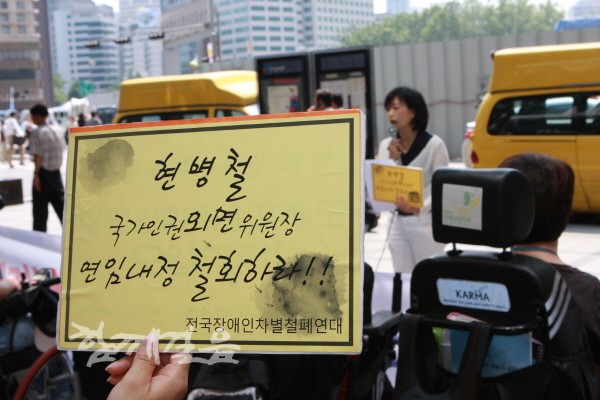 현병철
국가인권외면위원장
연임내정 철회하라!!
전국장애인차별철폐연대
함께걸음
KARMA